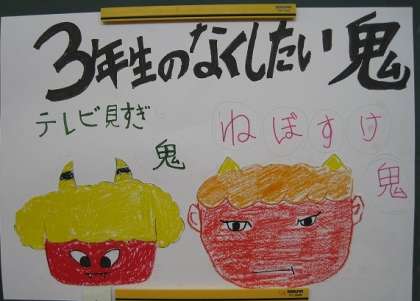 3年生のなくしたい鬼
テレビ見すぎ
鬼
ねぼすけ
鬼